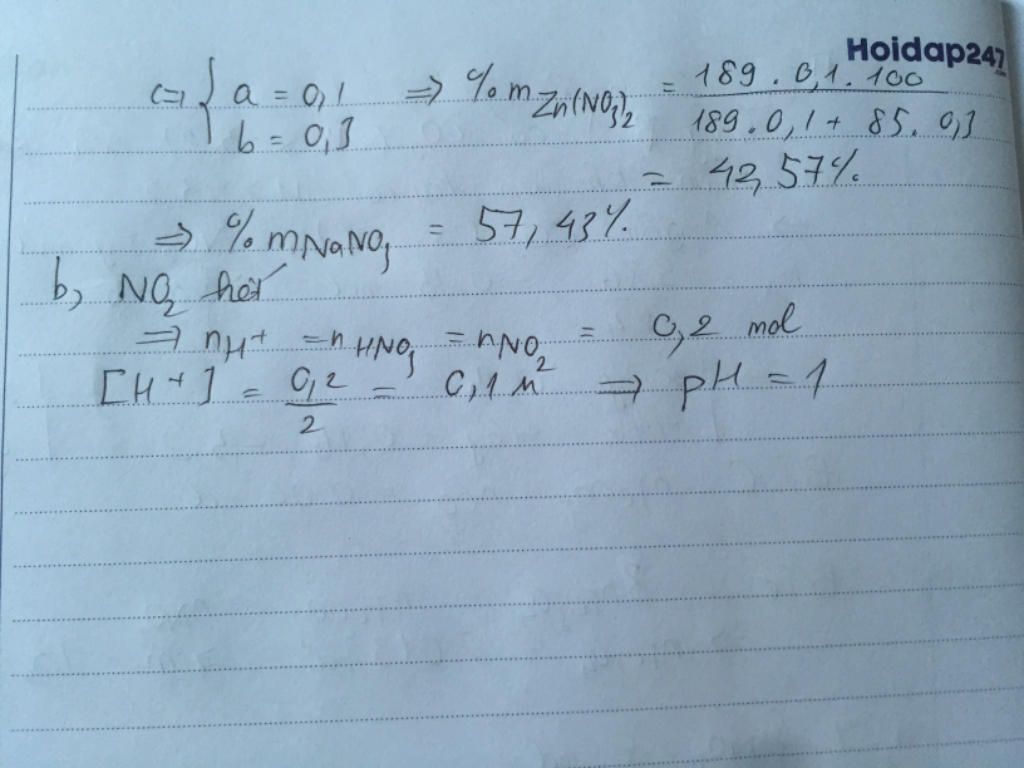 Hoidap247.com
<=> { a = 0,1 => % m Zn(NO3)2 = 189 . 0,1 . 100 / 189 . 0,1 + 85 . 0,3
b = 0,3
= 42,57%.
=> % m NaNO3 = 57,43%.
b, NO2 hết
=> nH+ = nHNO3 = nNO2 = 0,2 mol
[H+] = 0,2 / 2 = 0,1 M => pH = 1